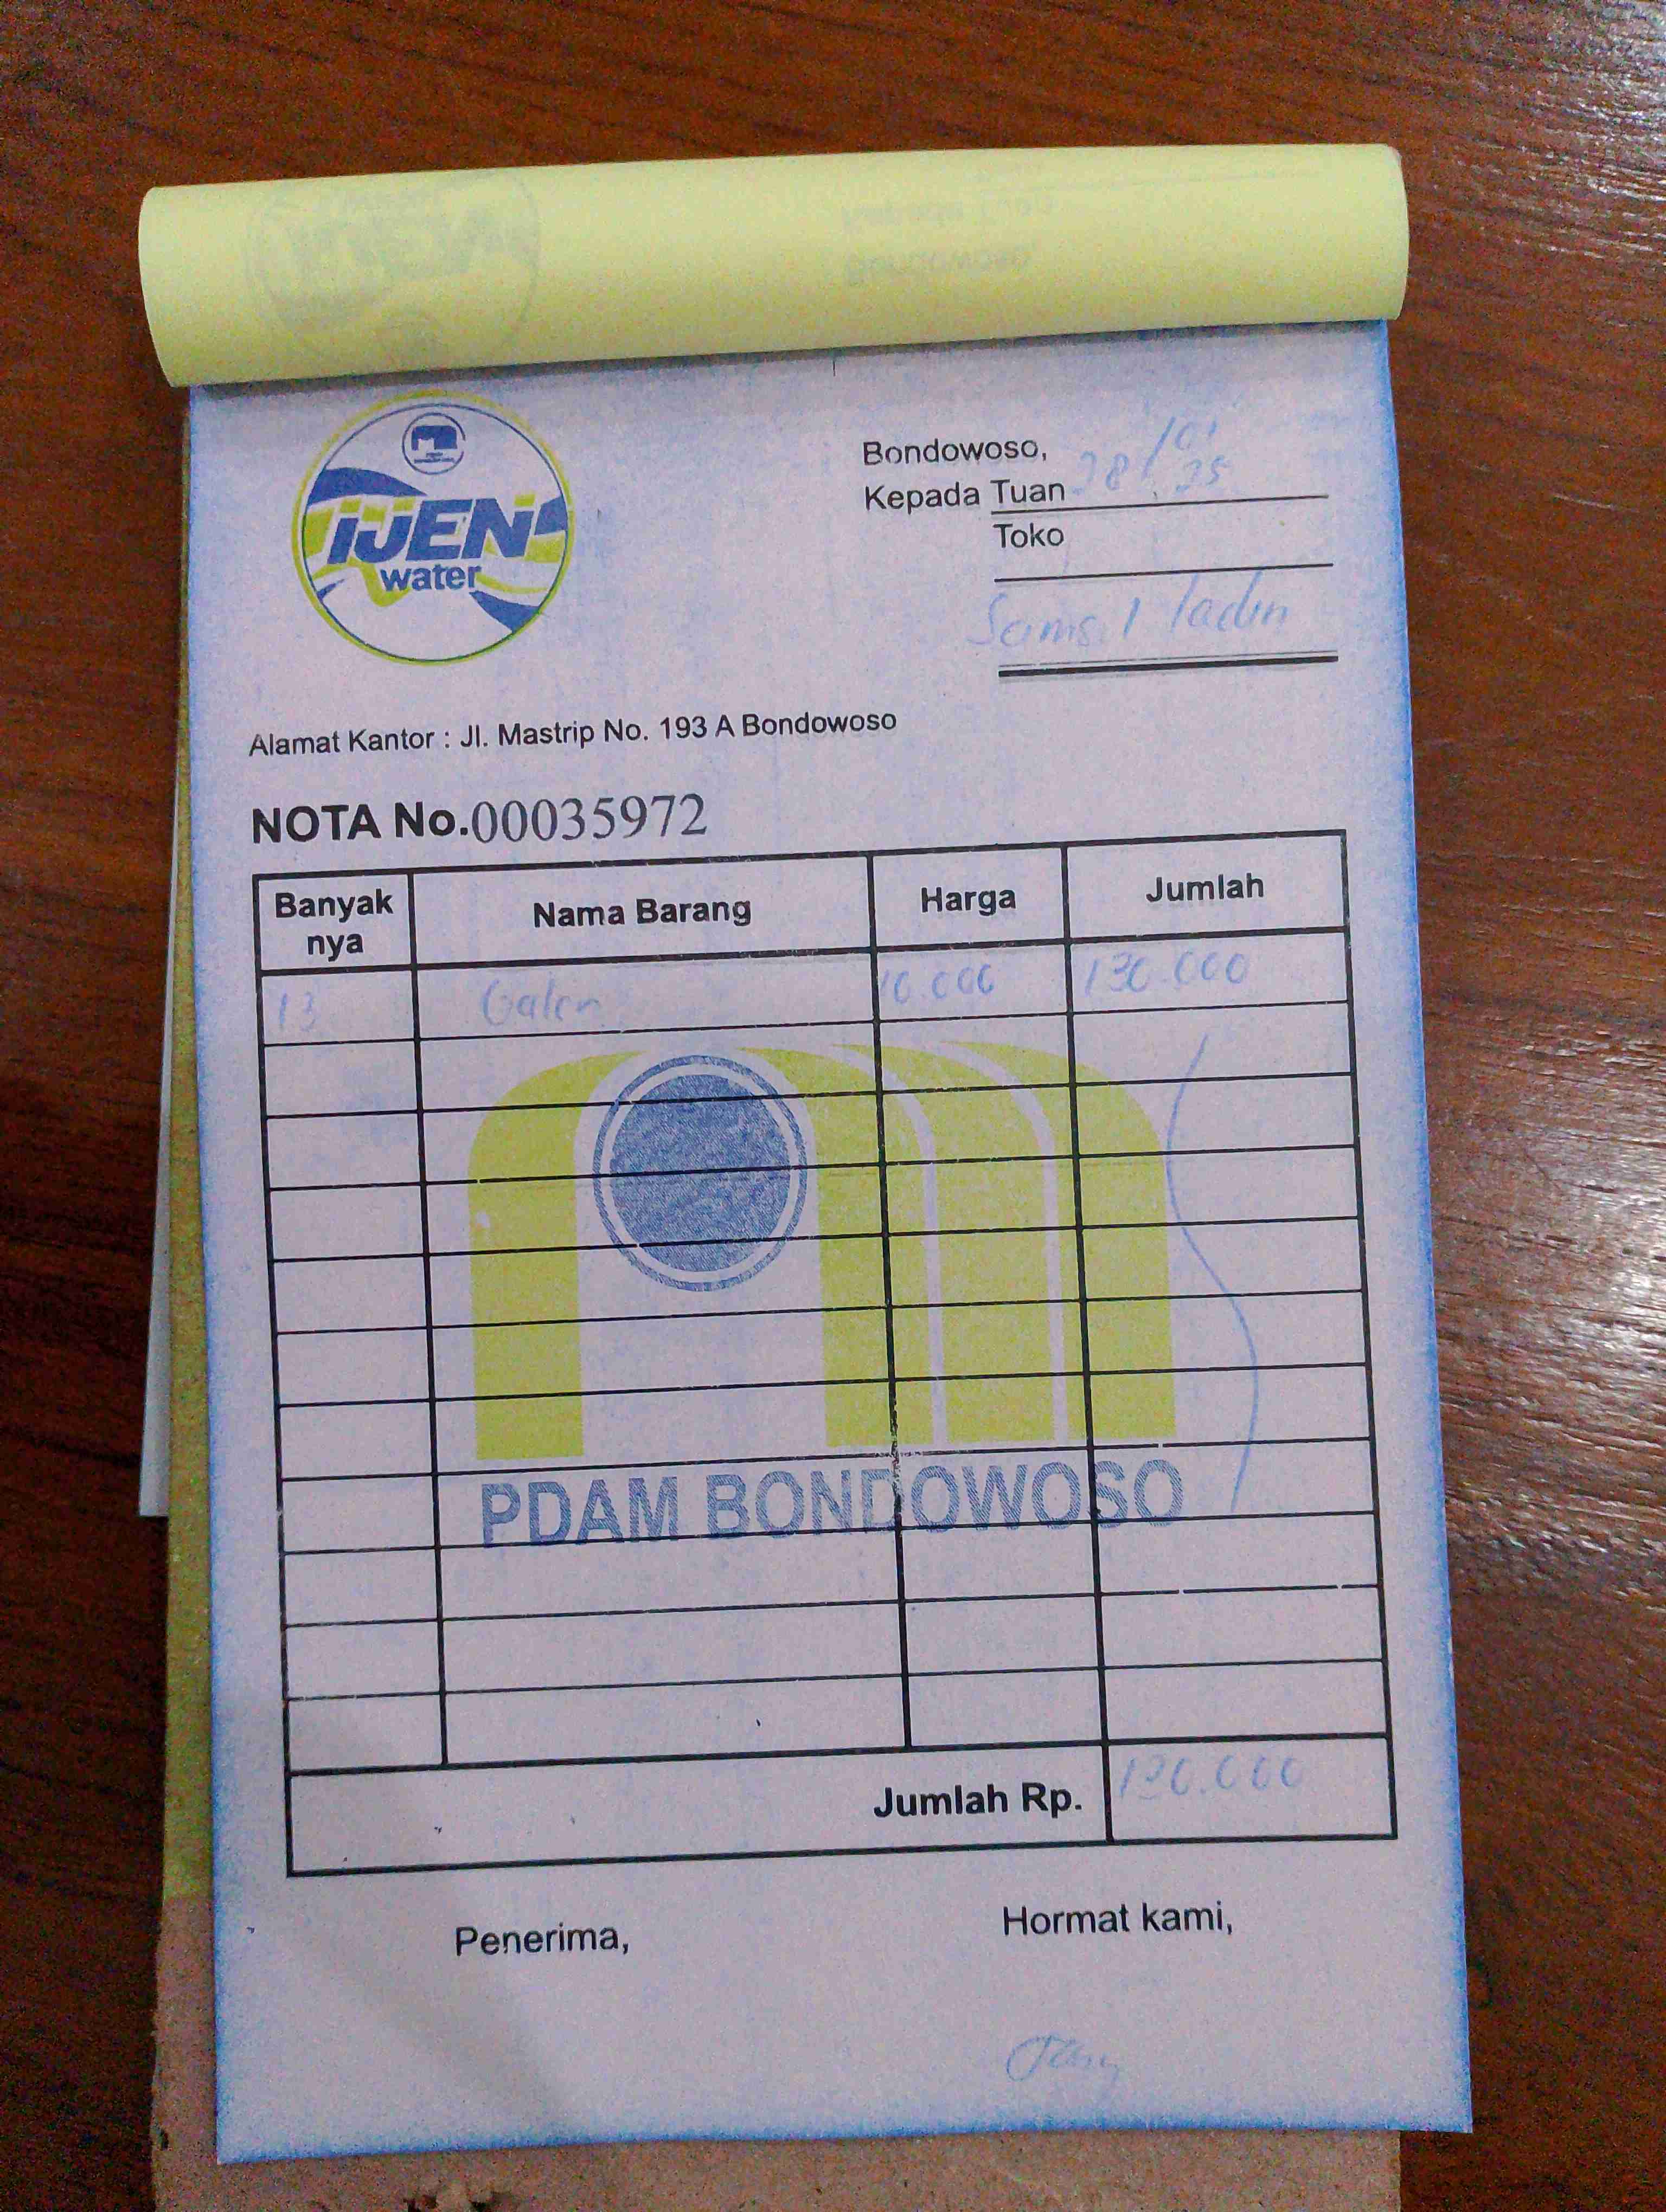 IJEN
water
Bondowoso, 28/01/25
Kepada Tuan
Toko
Samsul
Alamat Kantor : Jl. Mastrip No. 193 A Bondowoso
NOTA No.00035972
Banyak nya Nama Barang Harga Jumlah
13 Galon 10.000 130.000
PDAM BONDOWOSO
Jumlah Rp. 130.000
Penerima, Hormat kami,